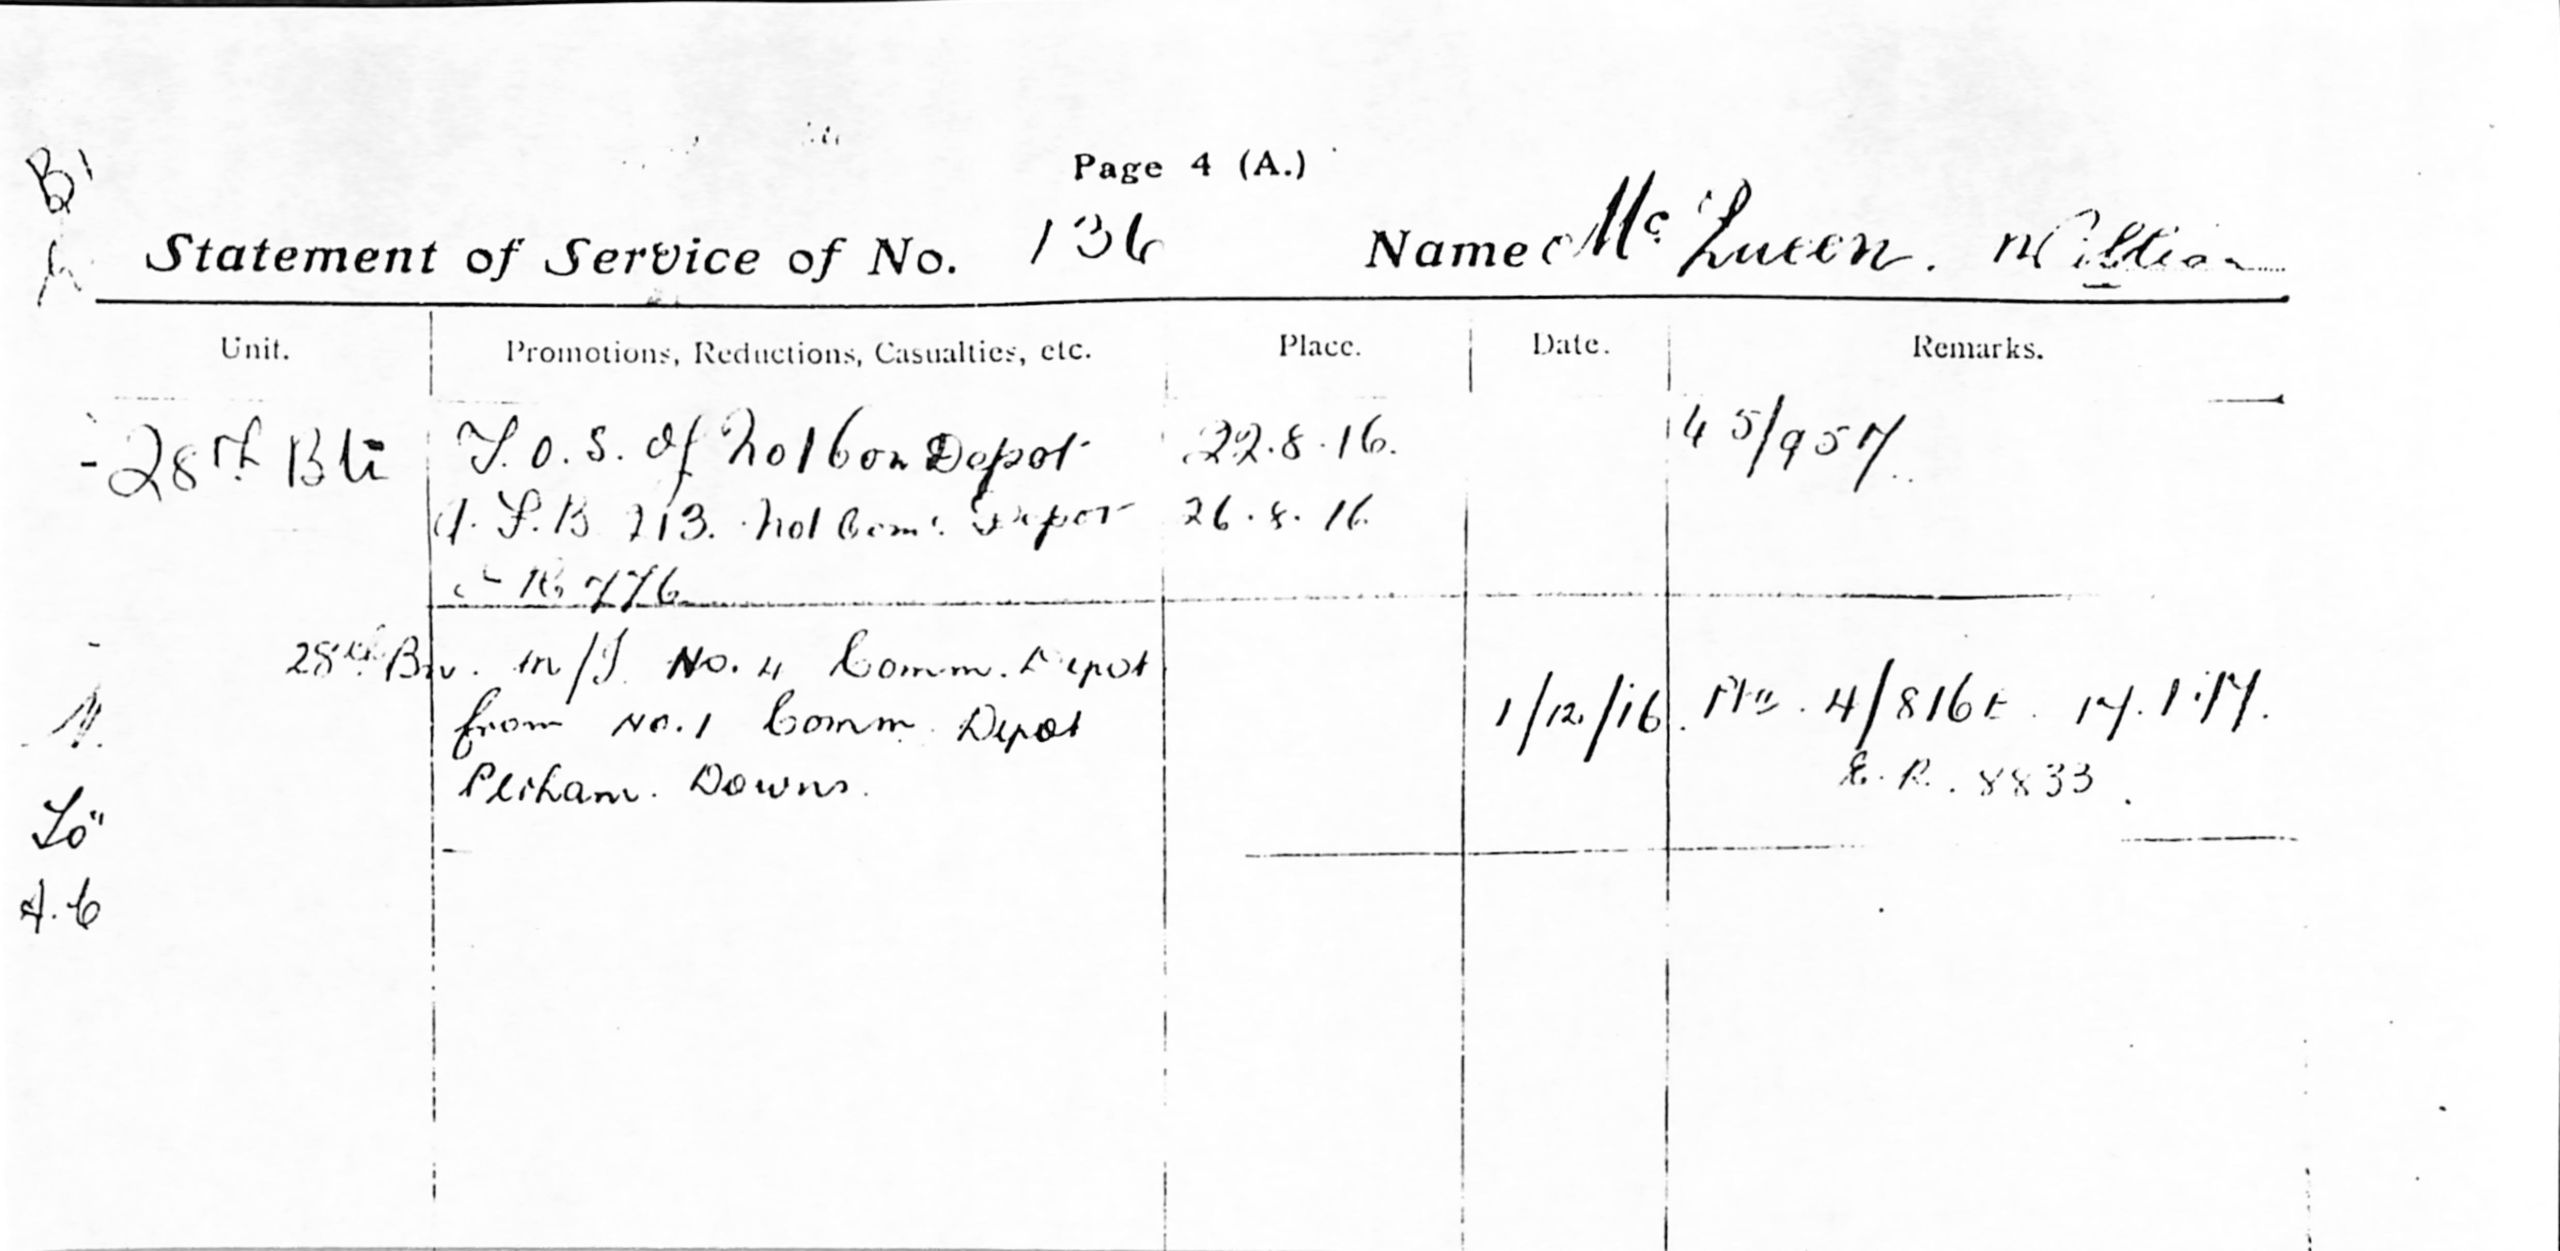 Page 4 (A.)
B1
Statement of Service of No. 136 Name Mc Queen. William
Unit. Promotions, Reductions, Casualties, etc. Place. Date. Remarks.
28th Btn T.O.S. of No 1 Con Depot 22.8.16. 45/957
213. No 1 Com. Depot 26.8.16
776
28th Bn. m/I No. 4 Comm. Depot
from No. 1 Comm. Depot 1/12/16. 4/816 17.1.17.
Perham. Downs. E.R. 8833.